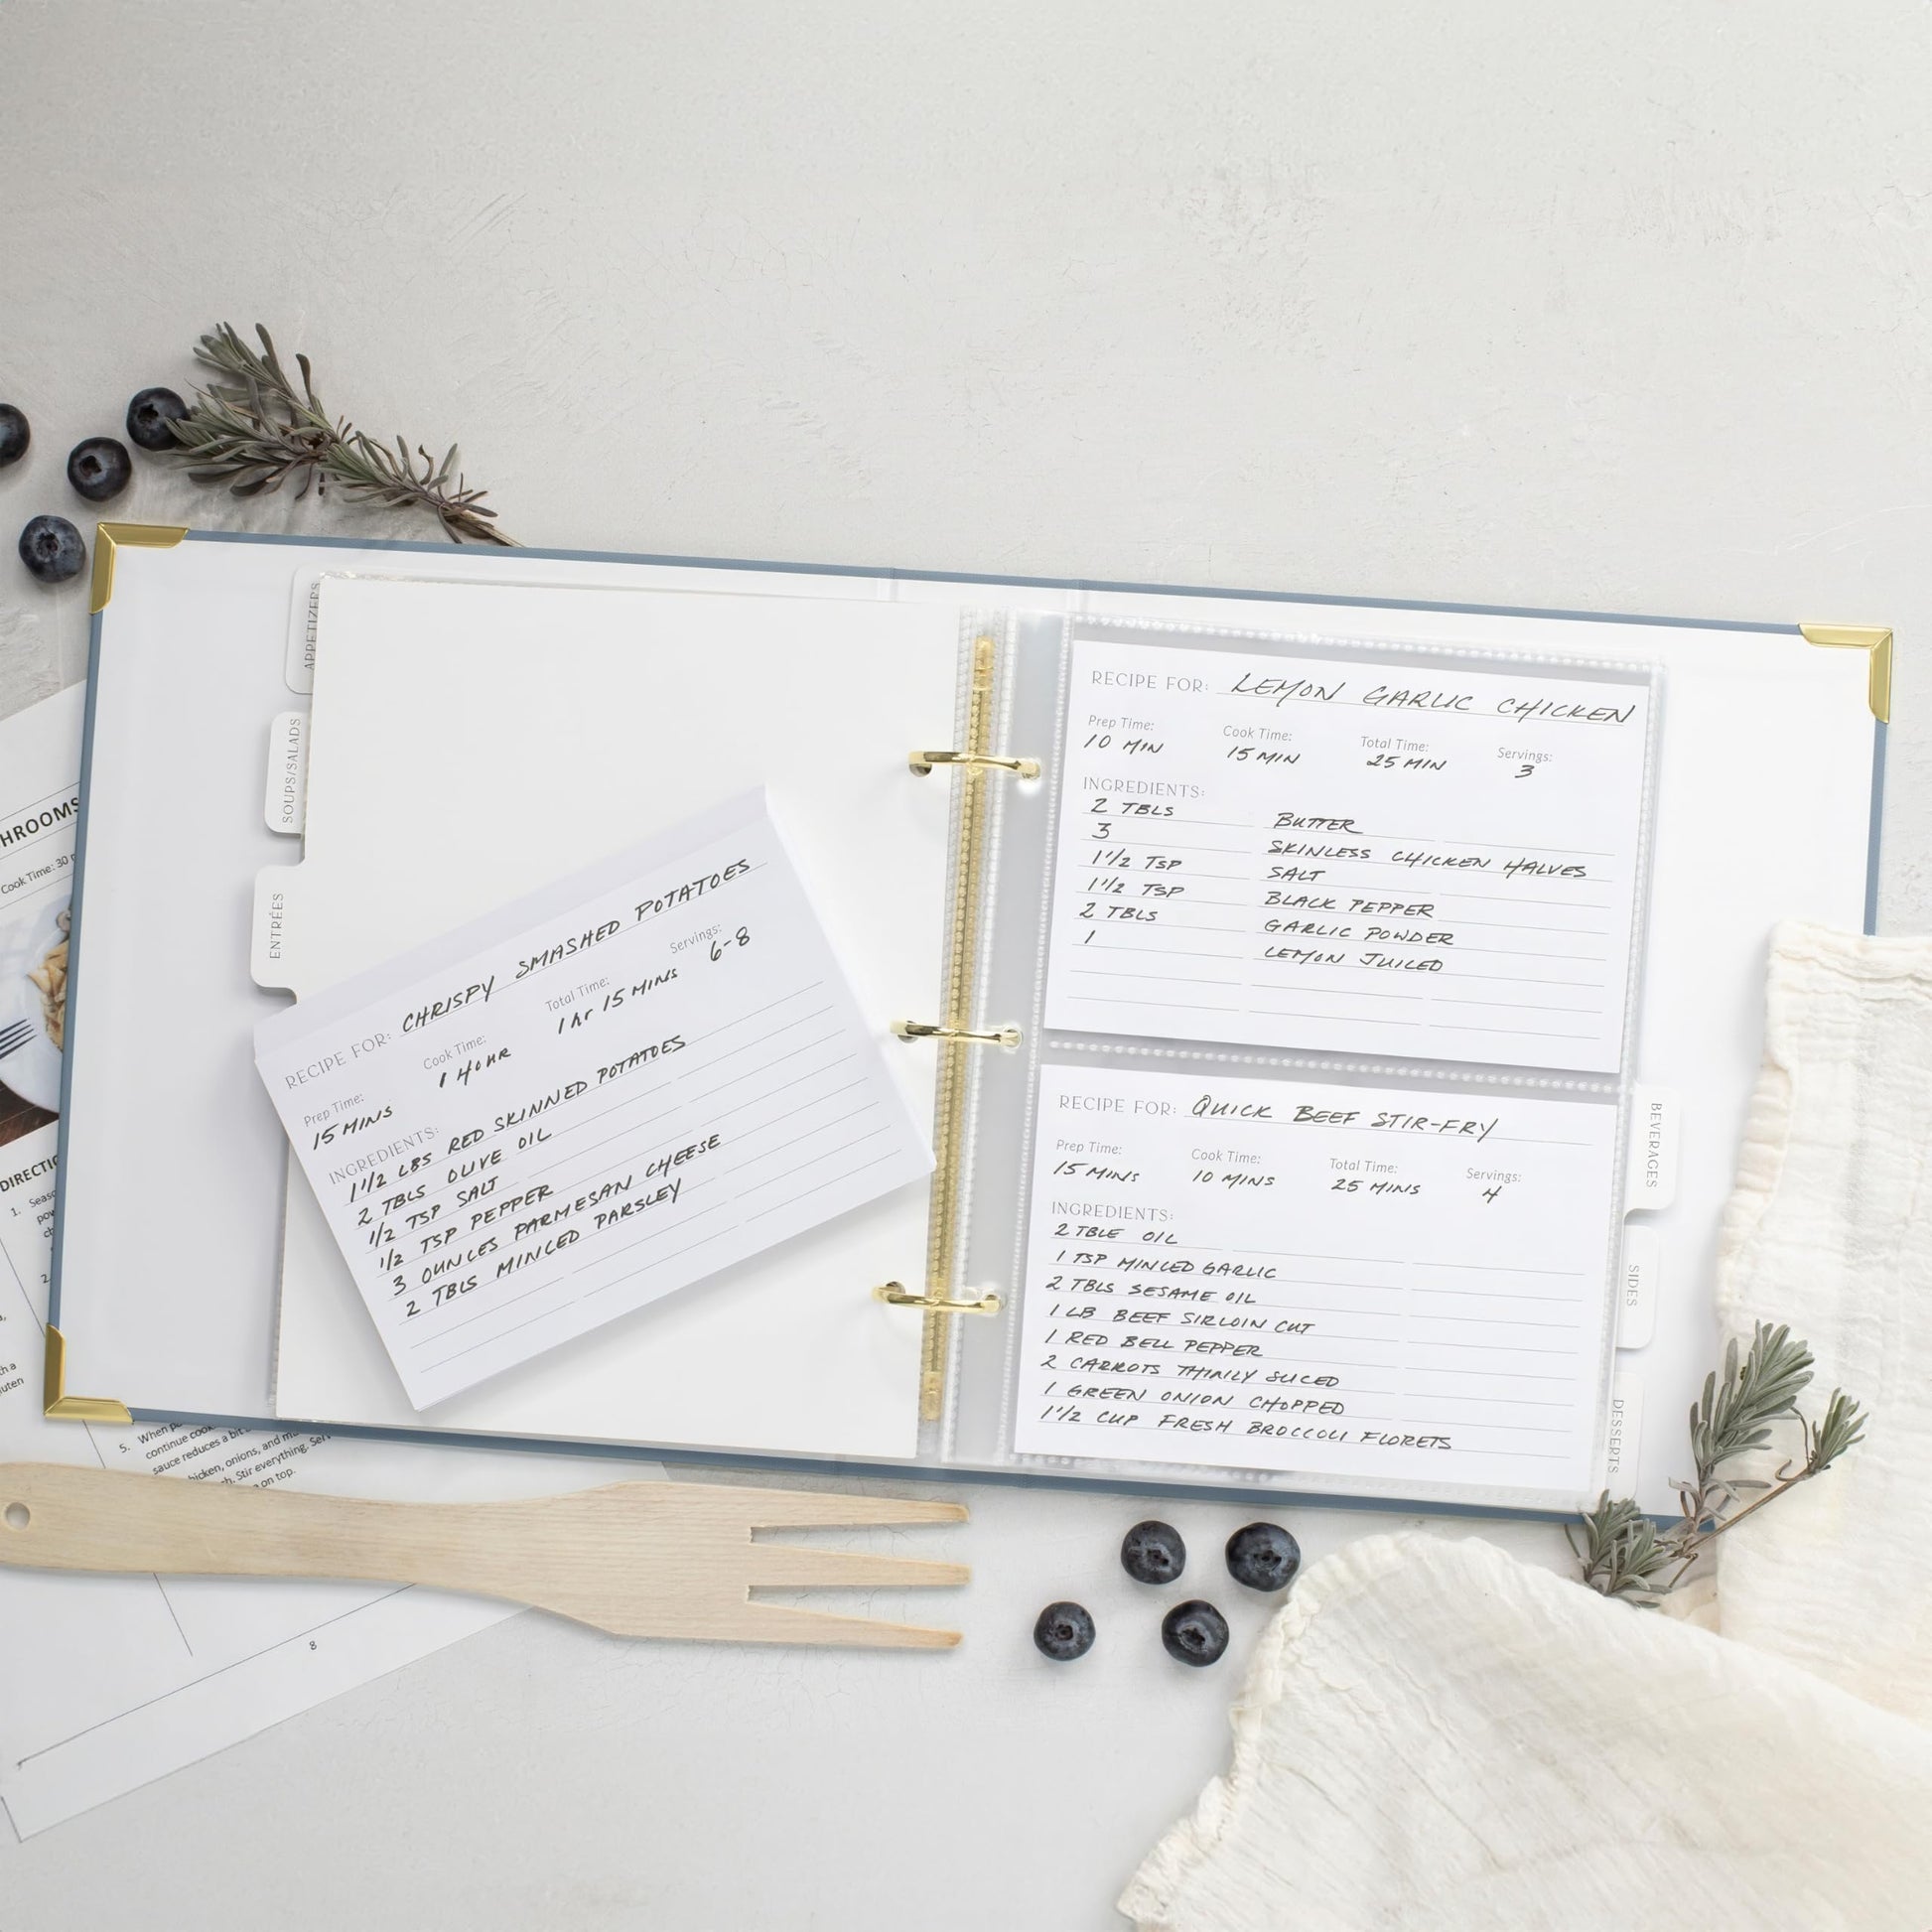 HROOMS
Cook Time: 30
DIRECTIO
1. Seaso
2.
5. When p
continue cook
sauce reduces a bit
hicken, onions, and m
h. Stir everything. Serv
on top.
8
APPETIZERS
SOUPS/SALADS
ENTRÉES
RECIPE FOR: CHRISPY SMASHED POTATOES
Prep Time: Cook Time: Total Time: Servings:
15 MINS 1 HOHR 1 hr 15 MINS 6-8
INGREDIENTS:
1 1/2 LBS RED SKINNED POTATOES
2 TBLS OLIVE OIL
1/2 TSP SALT
1/2 TSP PEPPER
3 OUNCES PARMESAN CHEESE
2 TBLS MINCED PARSLEY
RECIPE FOR: LEMON GARLIC CHICKEN
Prep Time: Cook Time: Total Time: Servings:
10 MIN 15 MIN 25 MIN 3
INGREDIENTS:
2 TBLS BUTTER
3 SKINLESS CHICKEN HALVES
1 1/2 TSP SALT
1 1/2 TSP BLACK PEPPER
2 TBLS GARLIC POWDER
1 LEMON JUICED
RECIPE FOR: QUICK BEEF STIR-FRY
Prep Time: Cook Time: Total Time: Servings:
15 MINS 10 MINS 25 MINS 4
INGREDIENTS:
2 TBLE OIL
1 TSP MINCED GARLIC
2 TBLS SESAME OIL
1 LB BEEF SIRLOIN CUT
1 RED BELL PEPPER
2 CARROTS THINLY SLICED
1 GREEN ONION CHOPPED
1 1/2 CUP FRESH BROCCOLI FLORETS
BEVERAGES
SIDES
DESSERTS